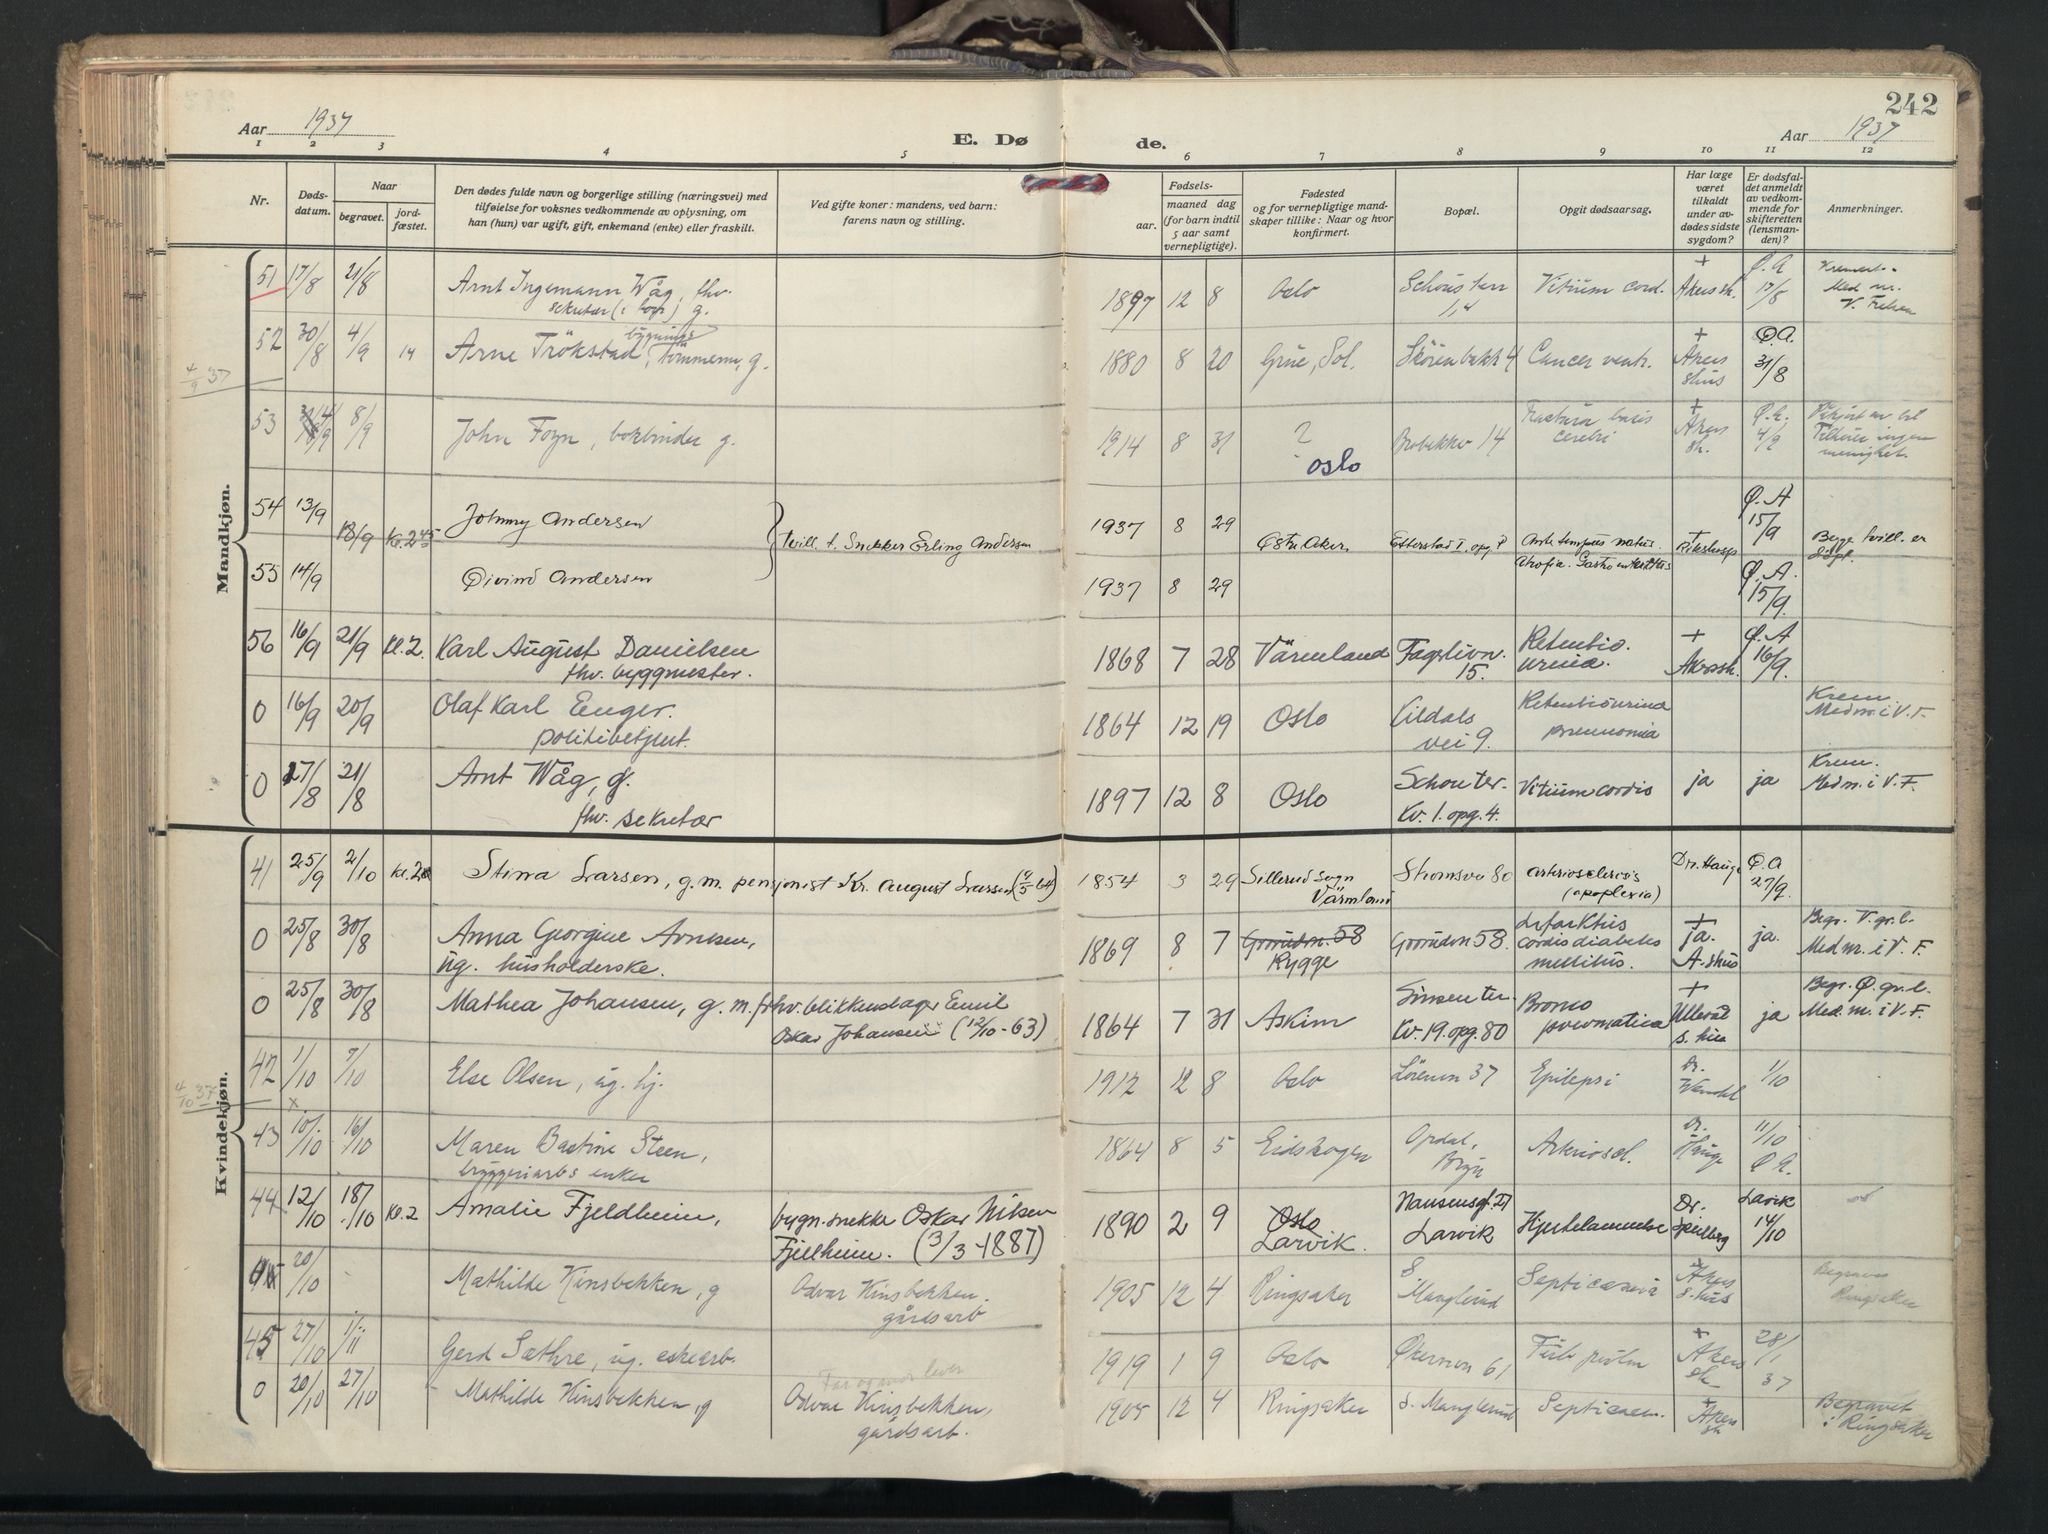 242
Aar 1937
E. Dø
de.
Aar 1937
1 2 3 4 5 6 7 8 9 10 11 12
Nr.
Døds-
datum.
Naar
begravet.
jord-
fæstet.
Den dødes fulde navn og borgerlige stilling (næringsvei) med
tilføielse for voksnes vedkommende av oplysning, om
han (hun) var ugift, gift, enkemand (enke) eller fraskilt.
Ved gifte koner: mandens, ved barn:
farens navn og stilling.
Fødsels-
aar. maaned dag
(for barn indtil
5 aar samt
vernepligtige).
Fødested
og for vernepligtige mand-
skaper tillike: Naar og hvor
konfirmert.
Bopæl.
Opgit dødsaarsag.
Har læge
været
tilkaldt
under av-
dødes sidste
sygdom?
Er dødsfal-
det anmeldt
av vedkom-
mende for
skifteretten
(lensman-
den)?
Anmerkninger.
Mandkjøn.
51 17/8 21/8 Arnt Ingemann Wåg, fhv. 1897 12 8 Oslo Vitium cord. + Akersh. Ø.A 17/8
52 30/8 4/9 14 Arne Trökstad, bygnings tömmerm, g. 1880 8 20 Grue, Sol. Cancer ventr. + Akers hus Ø.A. 31/8
4/9 37
53 4/9 8/9 John Foyn, bokbinder g. 1914 8 31 ? Oslo Brobekkv 14 Fractura basis cerebri + Akers sh. Ø.A. 4/9
54 13/9 18/9 Kl. 2 45 Johnny Andersen 1937 8 29 Ø.A 15/9
tvill. t. Snekker Erling Andersen Østre Aker. Etterstad I. opg. Ante tempus natus. + Rikshosp Begge tvill. er döpt.
55 14/9 Øivind Andersen 1937 8 29 Atrofia. Ø.A. 15/9
56 16/9 21/9 Kl. 2. Karl August Danielsen 1868 7 28 Värmland Fagerlivn. 15. Retentio urina. + Akersh. Ø.A 16/9
fhv. byggmester.
0 16/9 20/9 Olaf Karl Enger. 1864 12 19 Oslo Lildals vei 9. Retentio urina pneumonia Krem. Med m. i V. F.
politibetjent.
0 17/8 21/8 Arnt Wåg, g. 1897 12 8 Oslo Schou ter. Kv. 1. opg. 4. Vitium cordis ja ja Krem. Med m. i V. F.
fhv. sekretær
Kvindekjøn.
41 25/9 2/10 Kl. 2 Stina Larsen, g. m. pensjonist Kr. August Larsen 1854 3 29 Sillerud sogn Värmland Strömsv 80 arteriosclerosis (apoplexia) Dr. Hauge Ø.A 27/9
0 25/8 30/8 Anna Georgine Arnesen, 1869 8 7 Grorudvn. 58 Rygge Grorudvn 58. Infarktus cordis diabetes mellitus. + ja. A. shus ja. Begr. V. gr. l. Med m. i V. F.
ug. husholderske.
0 25/8 30/8 Mathea Johansen, g. m. fhv. blikkenslager Emil 1864 7 31 Askim Sinsen ter. Kv. 19. opg. 80 Bronco pneumatica + Ullevål s. hus ja Begr. Ø. gr. l. Med. m. i V. F.
Oskar Johansen (12/10-63)
42 1/10 7/10 Else Olsen, ug. hj. 1912 12 8 Oslo Lörenvn 37 Epilepsi Dr. 1/10
4/10 37
43 10/10 16/10 Maren Bastine Steen, 1864 8 5 Eidskogen Opdal, Bryn Arterioscl. Dr. Hauge 11/10 Ø A.
bryggeriarbs enke
44 12/10 18/10 Kl. 2 Amalie Fjeldheim, bygn.snekke Oskar Nilsen 1890 2 9 Oslo Larvik. Nansensgt. 27 Larvik Hjertelammelse Dr. Larvik 14/10
Fjellheim. (3/3-1887)
20/10 Mathilde Kinsbekken, g Odvar Kinsbekken. 1905 12 4 Ringsaker S. Manglerud Septicæmia Akers s. hus Begraves Ringsaker
gårdsarb
45 27/10 1/11 Gerd Sæthre, ug. eskearb. 1919 1 9 Oslo Økernvn 61 + Akers sh 28/1 37
Far og mor lever
0 20/10 27/10 Mathilde Kinsbekken, g Odvar Kinsbekken, 1905 12 4 Ringsaker S. Manglerud Septicaem. + Akers sh Begravet i Ringsaker
gårdsarb.